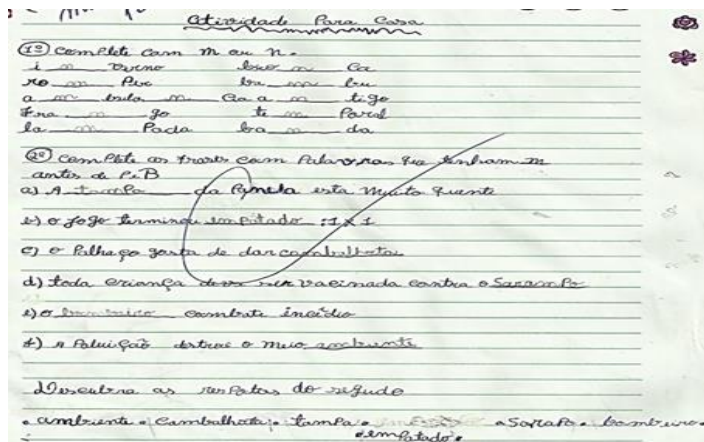 Atividade Para Casa
1º) Complete com m ou n.
i n verno bron ca
ro m Per ba m bu
a m bula n cia a n tigo
Fra n go te m Poral
la m Pada ba n da
2º) ComPlete as frases com Palavras que tenham m
antes de P e B
a) A tampa da Panela esta muito quente
b) o jogo terminou empatado :1 x 1
c) o Palhaço gosta de dar cambalhota
d) toda criança deve ser vacinada contra o SaramPo
e) o bombeiro combate incêdio
f) A Poluição destroe o meio ambiente
Descubra as resPotas do segudo
. ambiente . Cambalhota . tamPa . . SaraPo . bombeiro .
. emPatado .